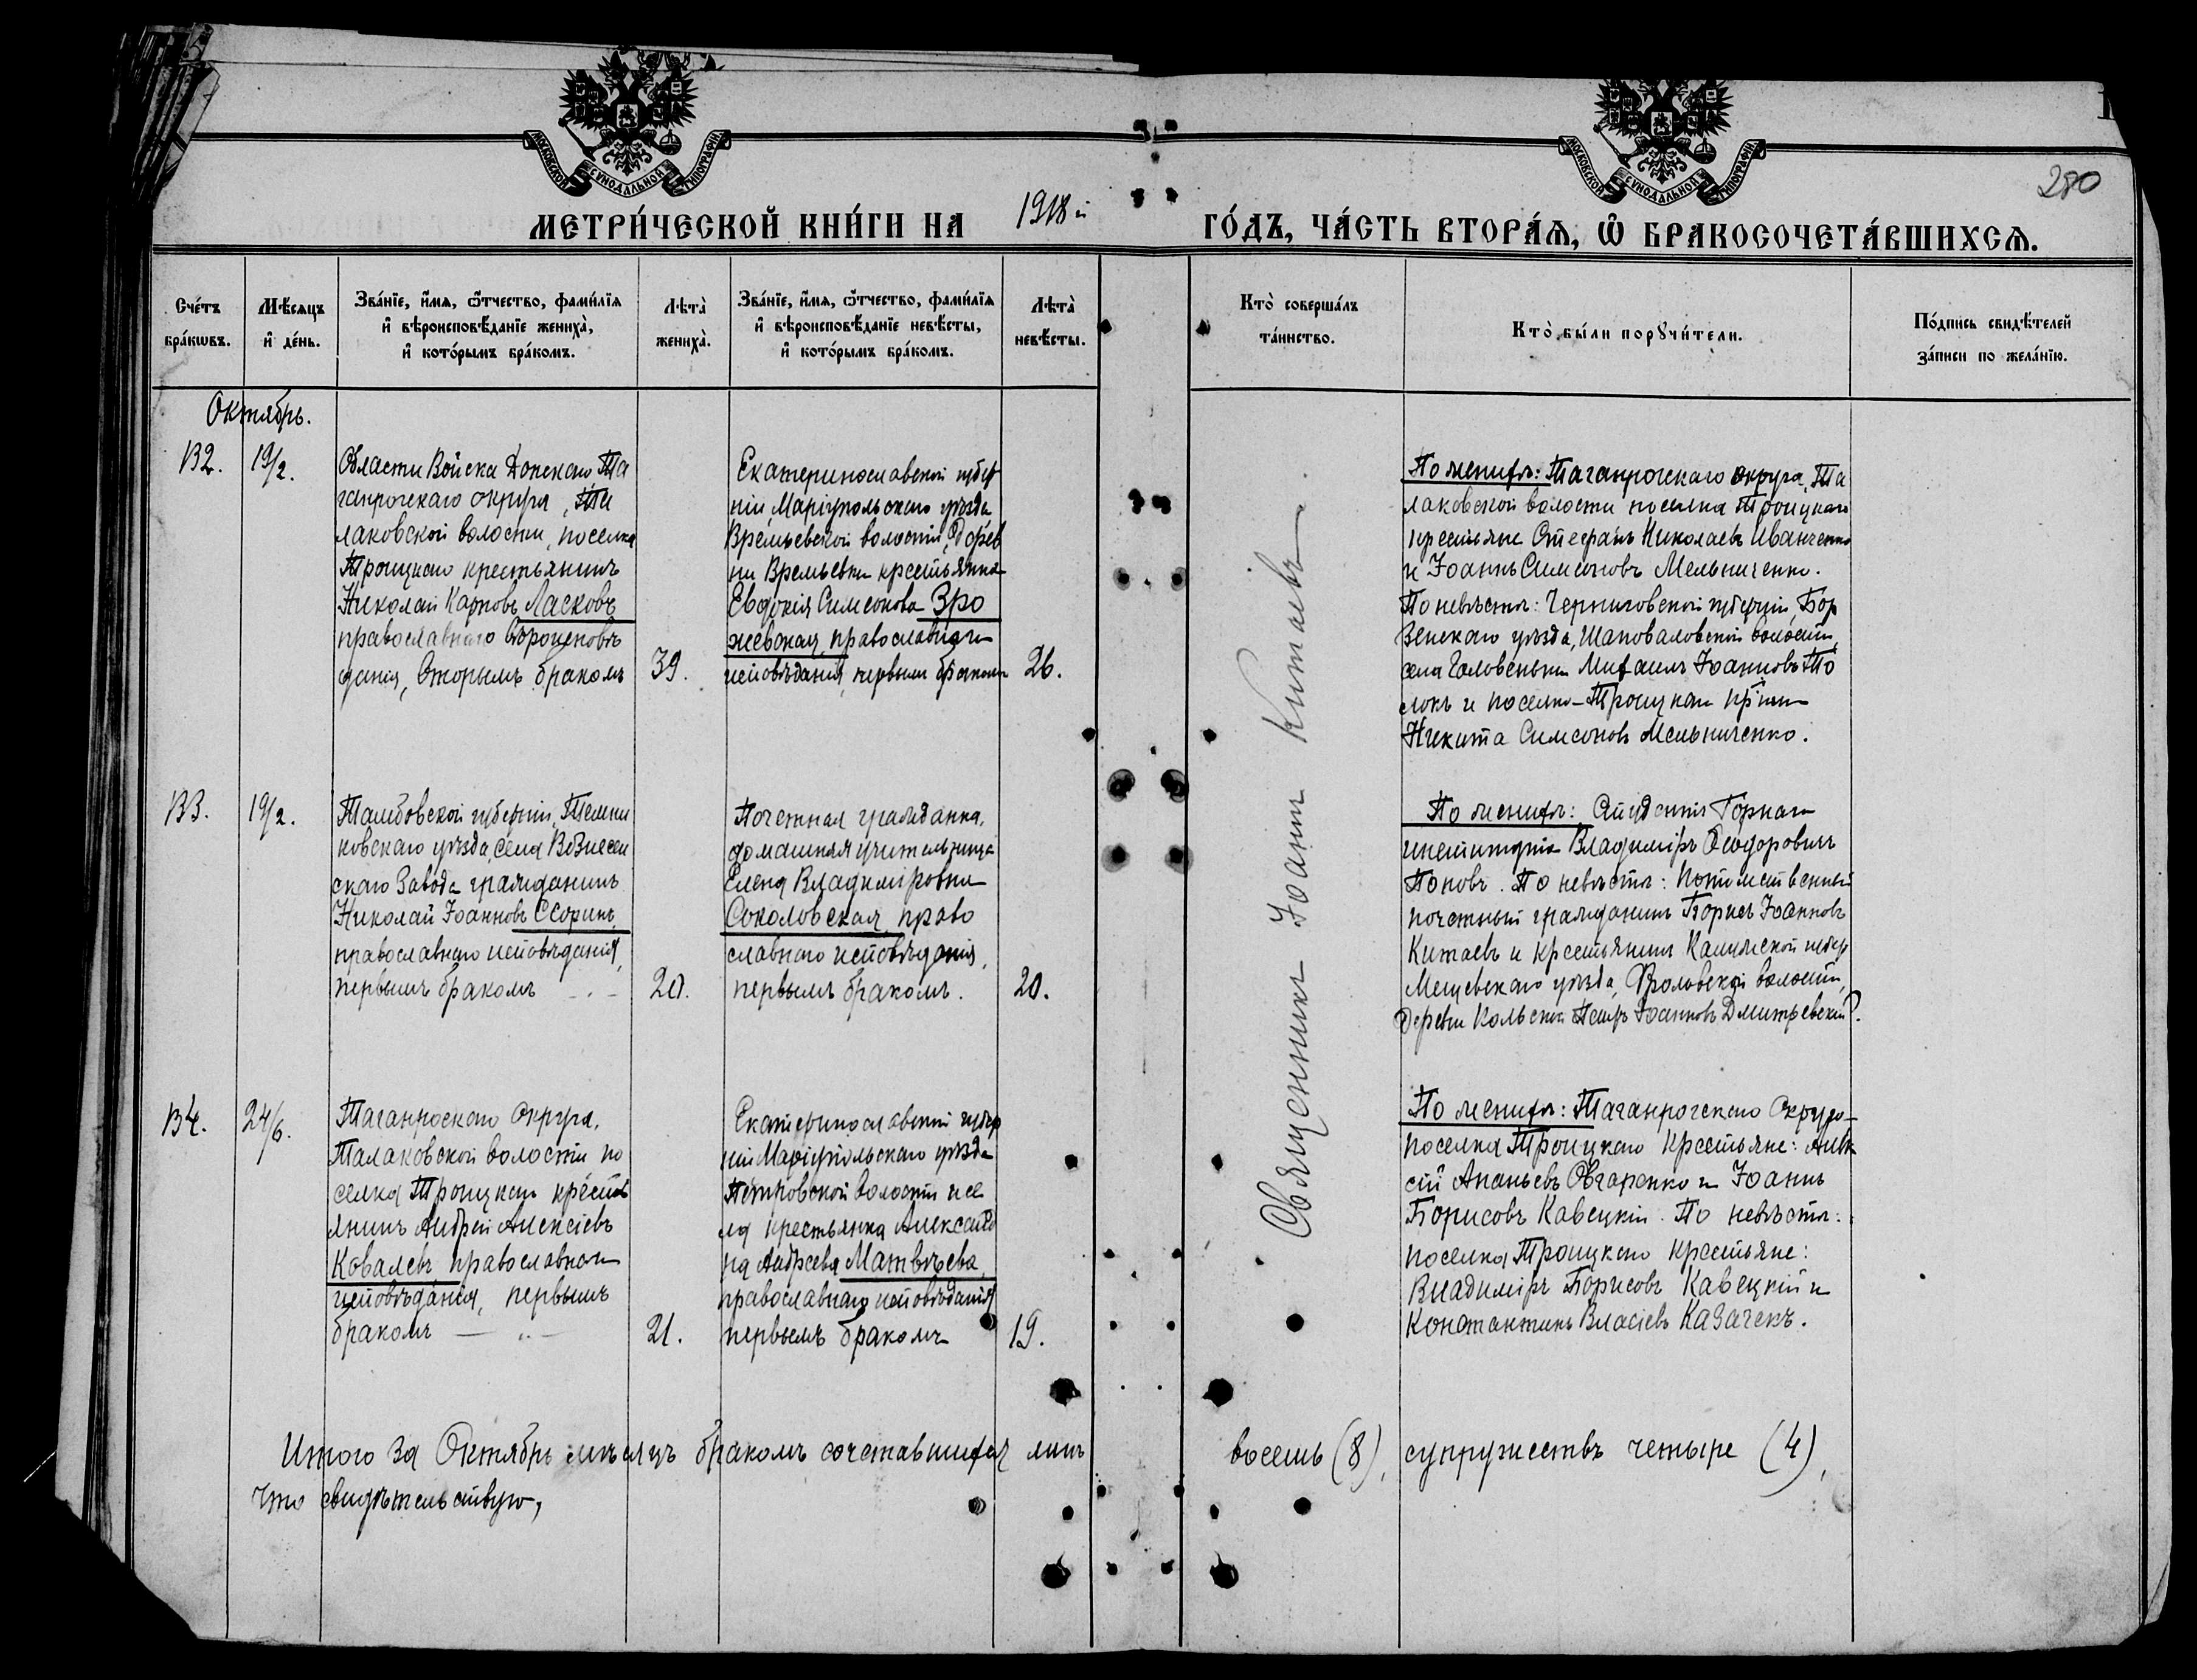 МОСКОВСКОЙ СУНОДАЛЬНОЙ ТИПОГРАФІИ
МОСКОВСКОЙ СУНОДАЛЬНОЙ ТИПОГРАФІИ
280
МЕТРИ́ЧЕСКОЙ КНИ́ГИ НА 1918 й ГО́ДЪ, ЧА́СТЬ ВТОРА́Ѧ, Ѽ БРАКОСОЧЕТА́ВШИХСѦ.
Сче́тъ
бра́кѡвъ.
Мѣ́сяцъ
и҆ де́нь.
Зва́нїе, и҆́мѧ, ѻ҆́тчество, фами́лїѧ
и҆ вѣроисповѣ́данїе женихà,
и҆ кото́рымъ бра́комъ.
Лѣ́та
женихà.
Зва́нїе, и҆́мѧ, ѻ҆́тчество, фами́лїѧ
и҆ вѣроисповѣ́данїе невѣ́сты,
и҆ кото́рымъ бра́комъ.
Лѣ́та
невѣ́сты.
Кто̀ соверша́лъ
та́инство.
Кто̀ бы́ли порꙋчи́тели.
По́дпись свидѣ́телей
за́писи по жела́нїю.
Октябрь.
32.
19/2.
Области Войска Донскаго Та
ганрогскаго округа, Та
лаковской волости, поселка
Троицкаго крестьянинъ
Николай Карповъ Ласковъ
православнаго вѣроисповѣ
данія, вторымъ бракомъ
39.
Екатеринославской губер
ніи, Маріупольскаго уѣзда
Времьевской волости, дерев
ни Времьевки крестьянка
Евдокія Симеонова Зро
жевская, православнаго
исповѣданія, первымъ бракомъ
26.
Священникъ Іоаннъ Китаевъ
По женихѣ: Таганрогскаго округа, Та
лаковской волости поселка Троицкаго
крестьяне Стефанъ Николаевъ Иванченко
и Іоаннъ Симеоновъ Мельниченко.
По невѣстѣ: Черниговской губерніи, Бор
зенскаго уѣзда, Шаповаловской волости,
села Головеньки Михаилъ Іоанновъ То
локъ и поселка Троицкаго кр-нинъ
Никита Симеоновъ Мельниченко.
33.
19/2.
Тамбовской губерніи, Темни
ковскаго уѣзда, села Вознесен
скаго Завода гражданинъ
Николай Іоанновъ Ссоринъ,
православнаго исповѣданія,
первымъ бракомъ
20.
Почетная гражданка,
домашняя учительница
Елена Владиміровна
Соколовская, право
славнаго исповѣданія,
первымъ бракомъ.
20.
По женихѣ: Студентъ Горнаго
института Владиміръ Ѳеодоровичъ
Поповъ. По невѣстѣ: потомственный
почетный гражданинъ Борисъ Іоанновъ
Китаевъ и крестьянинъ Калужской губер
Мещевскаго уѣзда, Фроловской волости,
деревни Кольской Петръ Іоанновъ Дмитревскій.
34.
24/6.
Таганроскаго Округа,
Талаковской волости по
селка Троицкаго кресть
янинъ Андрей Алексіевъ
Ковалевъ православнаго
исповѣданія, первымъ
бракомъ
21.
Екатеринославской губер
ніи Маріупольскаго уѣзда
Петровской волости и се
ла крестьянка Александ
ра Андреева Матвѣева,
православнаго исповѣданія
первымъ бракомъ
19.
По женихѣ: Таганрогскаго Округа
поселка Троицкаго крестьяне: Алек
сій Ананьевъ Овчаренко и Іоаннъ
Борисовъ Кавецкій. По невѣстѣ:
поселка Троицкаго крестьяне:
Владиміръ Борисовъ Кавецкій и
Константинъ Власіевъ Казачекъ.
Итого за Октябрь мѣсяцъ бракомъ сочетавшихся лицъ восемь (8), супружествъ четыре (4),
что свидѣтельствую,